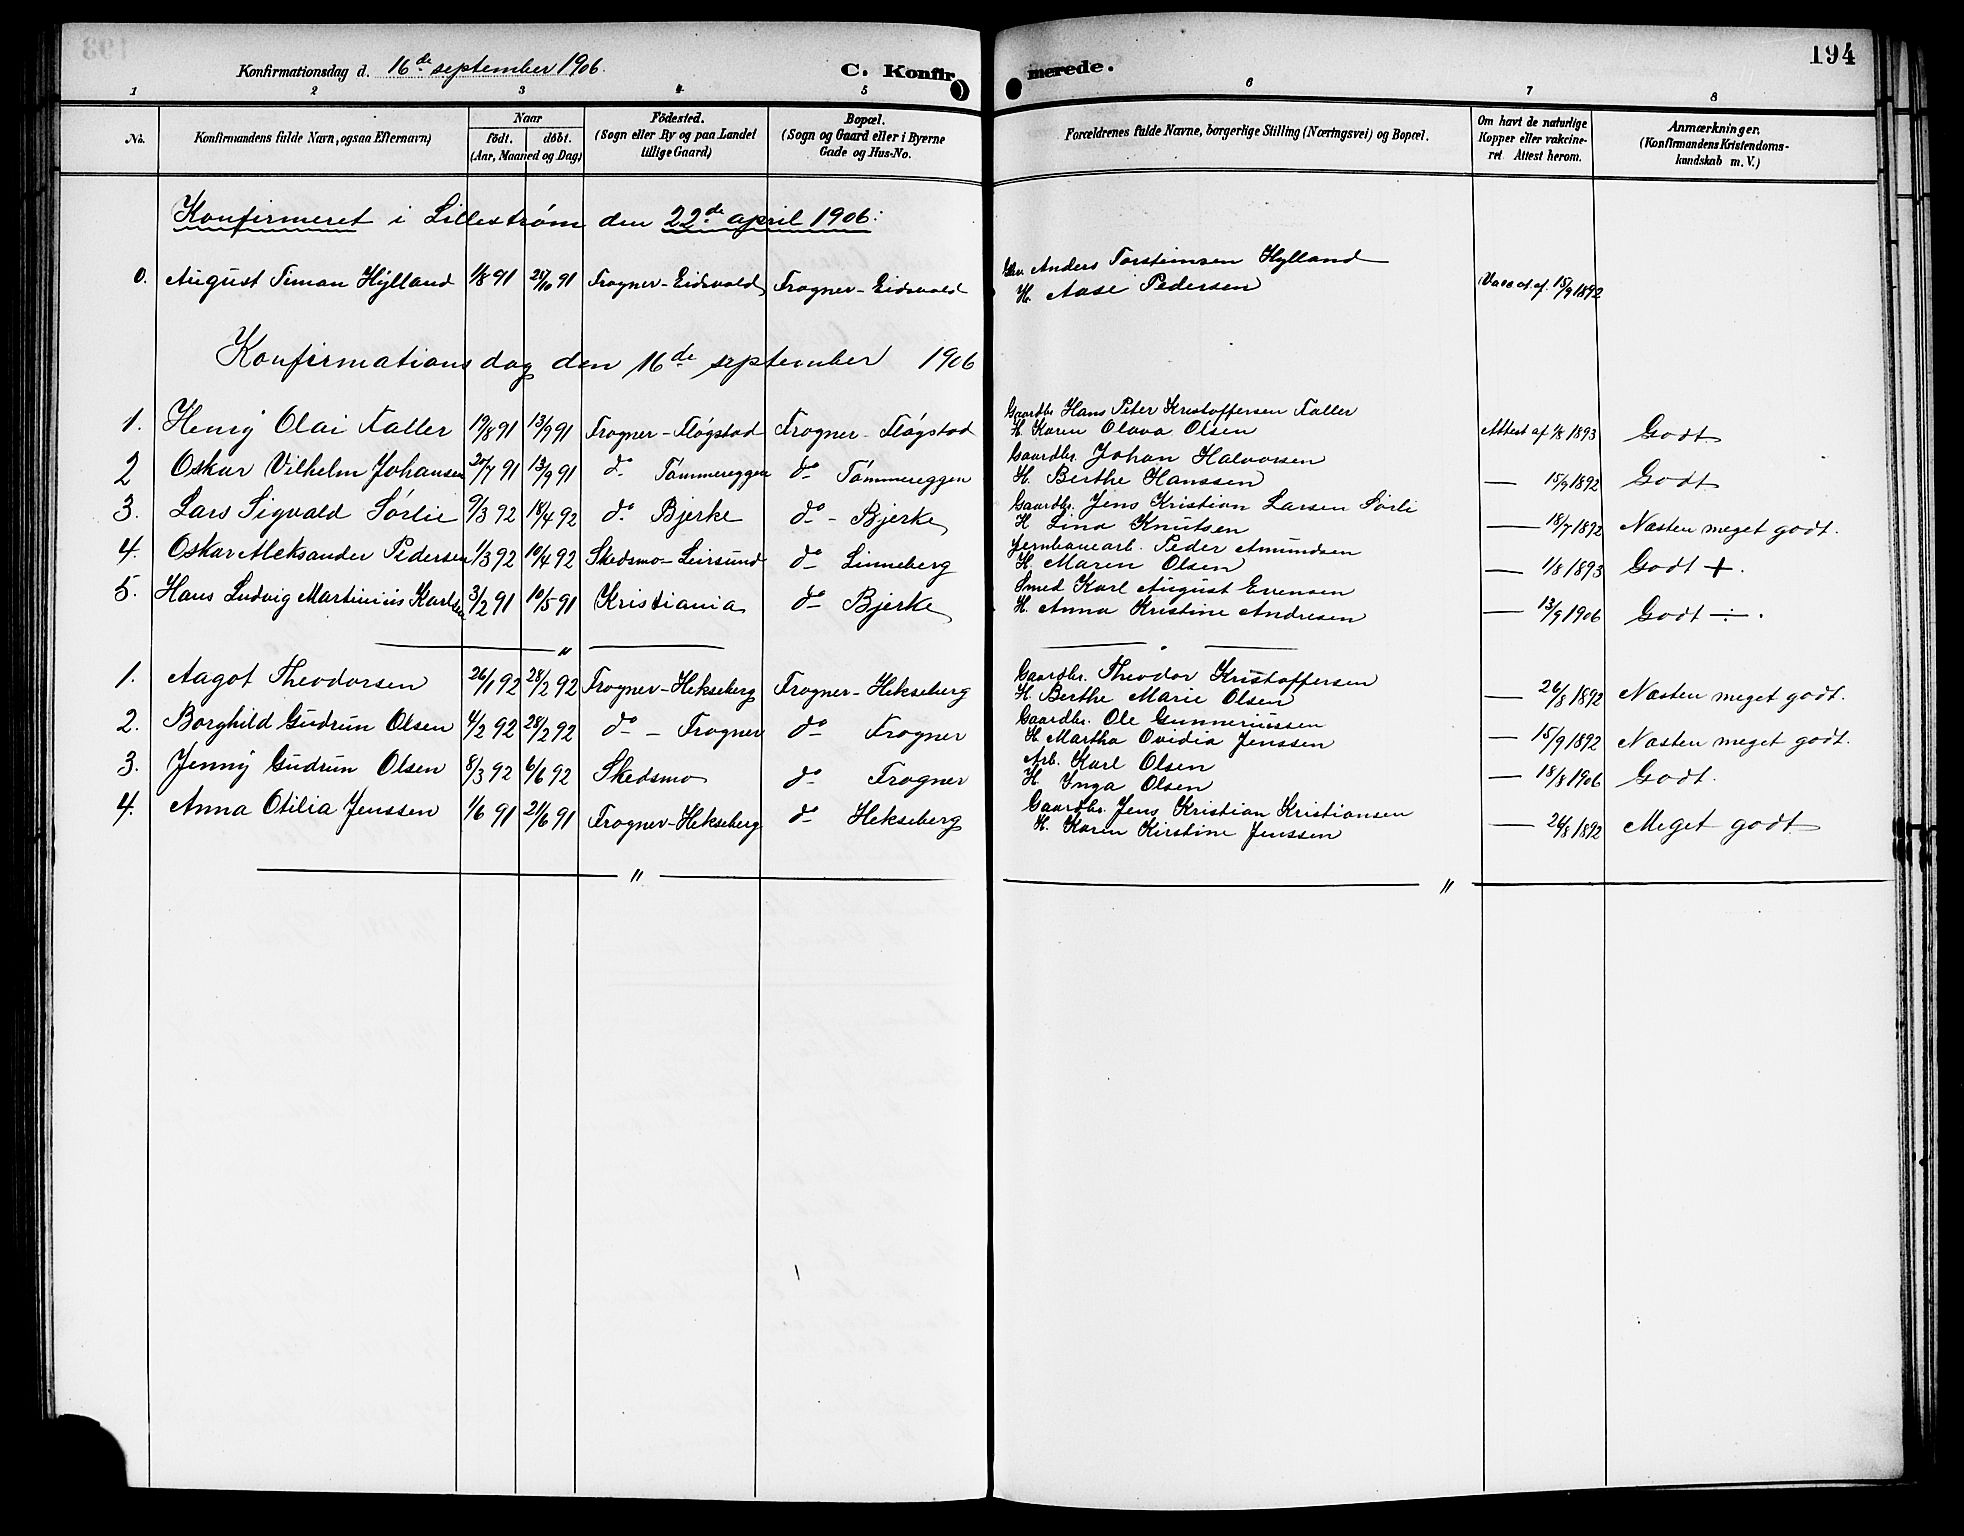 194
Konfirmationsdag d. 16de september 1906. C. Konfirmerede.
1 2 3 4 5 6 7 8
No. Konfirmandens fulde Navn, ogsaa Efternavn) Naar födt. döbt. (Aar, Maaned og Dag) Födested. (Sogn eller By og paa Landet tillige Gaard) Bopæl. (Sogn og Gaard eller i Byerne Gade og Hus-No. Forældrenes fulde Navne, borgerlige Stilling (Næringsvei) og Bopæl. Om havt de naturlige Kopper eller vakcineret. Attest herom. Anmærkninger. (Konfirmandens Kristendomskundskab m. V.)
Konfirmeret i Lillestrøm den 22de april 1906:
0. August Timan Hylland 1/8 91 25/10 91 Frogner-Eidsvold Frogner-Eidsvold Anders Torsteinsen Hylland
H. Aase Pedersen 15/9 1892
Konfirmationsdag den 16de september 1906
1. Henry Olai Faller 19/8 91 13/9 91 Frogner-Fløgstad Frogner-Fløgstad Gaardbr. Hans Peter Kristoffersen Faller
H. Karen Olava Olsen Attest af 1/8 1893 Godt
2 Oskar Vilhelm Johansen 20/7 91 13/9 91 do Tømmereggen do Tømmereggen Gaardbr. Johan Halvorsen
H. Berthe Hanssen — 15/9 1892 Godt
3. Lars Sigvald Sørlie 9/3 92 18/4 92 do. Bjerke do - Bjerke Gaardbr. Jens Kristian Larsen Sørli
H. Lina Knutsen — 18/7 1892 Næsten meget godt.
4. Oskar Aleksander Pedersen 1/3 92 10/4 92 Skedsmo-Leirsund do Linneberg Jernbanearb. Peder Amundsen
H. Maren Olsen — 1/8 1893 Godt +.
5. Hans Ludvig Martinius Karlsen 3/2 91 10/5 91 Kristiania do Bjerke Smed Karl August Evensen
H. Anna Kristine Andresen — 13/9 1906 Godt ÷.
— " —
1. Aagot Theodorsen 26/1 92 28/2 92 Frogner-Hekseberg Frogner-Hekseberg Gaardbr. Theodor Kristoffersen
H. Berthe Marie Olsen — 26/8 1892 Næsten meget godt.
2. Borghild Gudrun Olsen 4/2 92 28/2 92 do - Frogner do Frogner Gaardbr. Ole Gunneriussen
H. Martha Ovidia Jenssen — 15/9 1892 Næsten meget godt.
3. Jenny Gudrun Olsen 8/3 92 6/6 92 Skedsmo do Frogner Arb. Karl Olsen
H. Inga Olsen — 18/8 1906 Godt.
4. Anna Otilia Jenssen 1/6 91 21/6 91 Frogner-Hekseberg do Hekseberg Gaardbr. Jens Kristian Kristiansen
H. Karen Kirstine Jenssen — 26/8 1892 Meget godt
— " — — " —